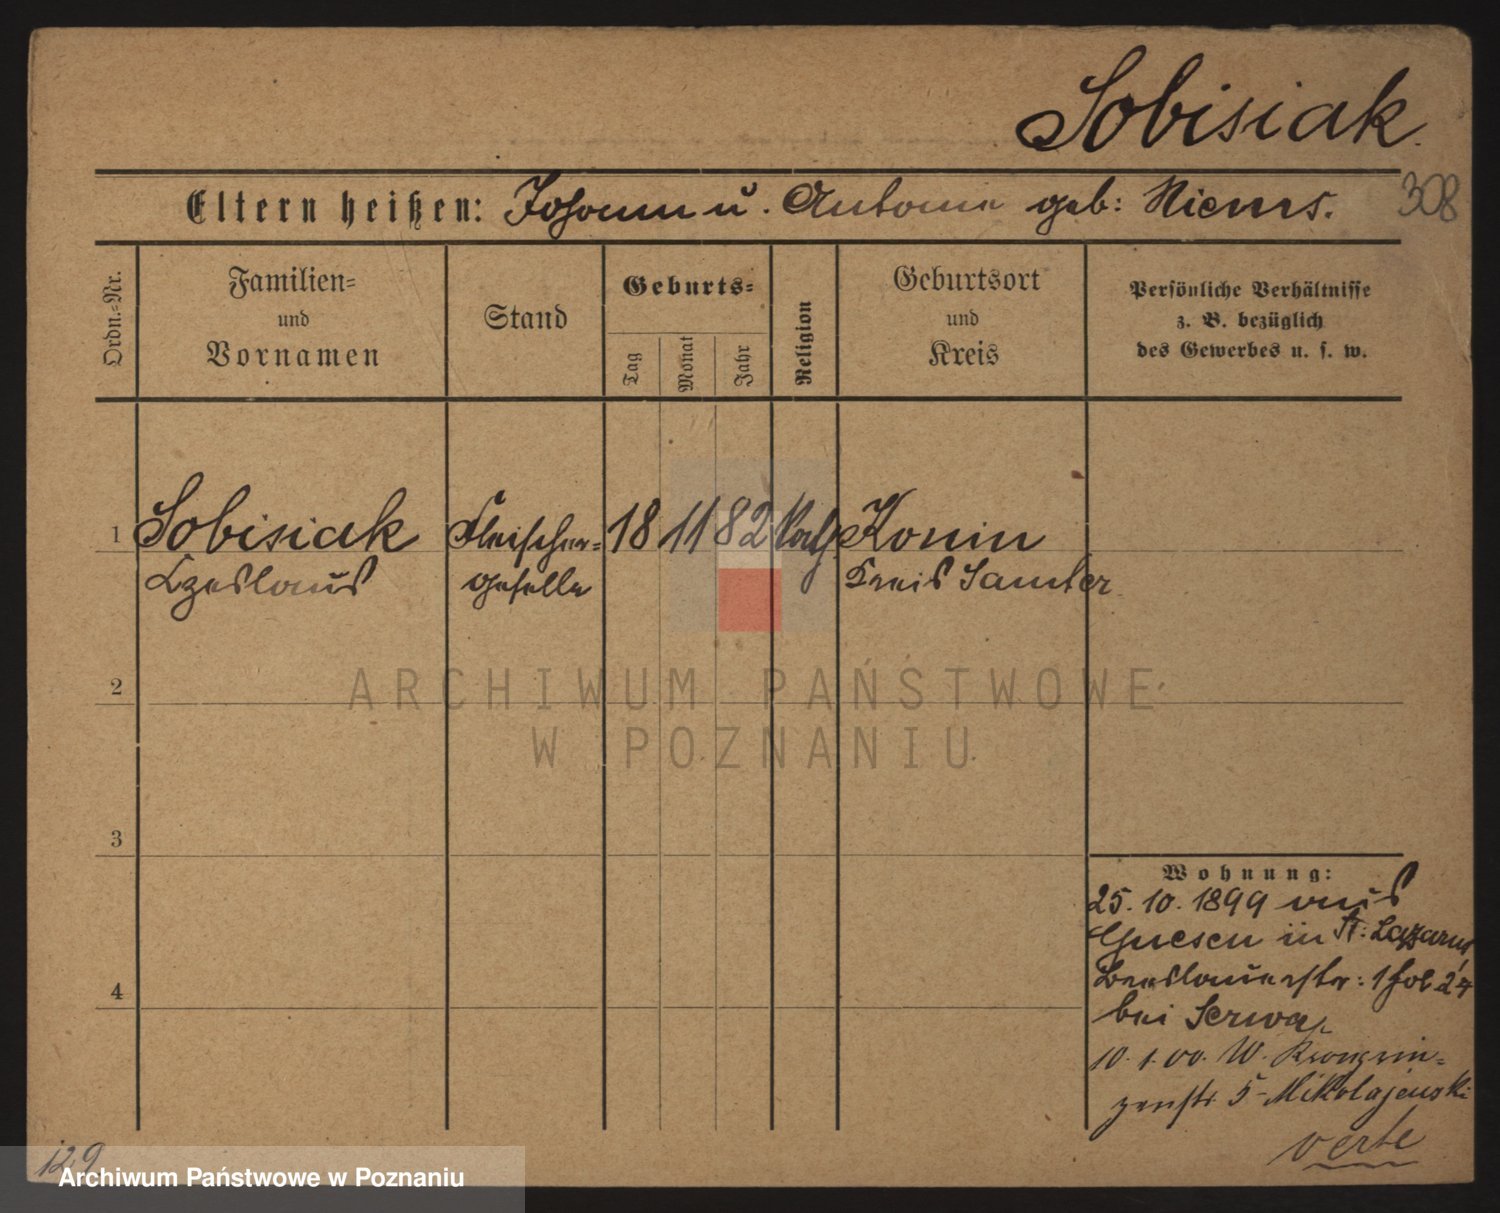 Sobisiak.
Eltern heißen: Johann u. Antonie geb: Niems. 308
Ordn.-Nr.
Familien-
und
Vornamen
Stand
Geburts-
Tag
Monat
Jahr
Religion
Geburtsort
und
Kreis
Persönliche Verhältnisse
z. B. bezüglich
des Gewerbes u. s. w.
1 Sobisiak Fleischer- 18 11 82 kath. Konin
Czeslaus geselle Kreis Samter
2
ARCHIWUM PAŃSTWOWE
W POZNANIU
3
Wohnung:
25. 10. 1899 aus
Gnesen in St. Lazarus
4
Breslauerstr: 1 fol 24
bei
10. 1. 00. W. Kronprin-
zenstr 5 Mikolajewski
verte
129
Archiwum Państwowe w Poznaniu